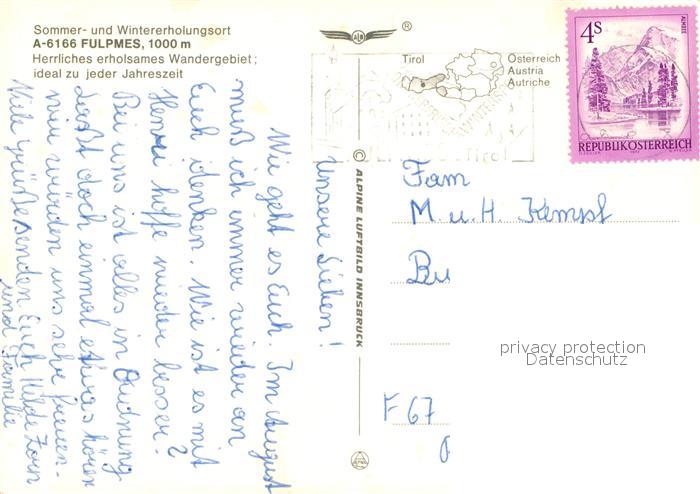 Sommer- und Wintererholungsort
A-6166 FULPMES, 1000 m
Herrliches erholsames Wandergebiet;
ideal zu jeder Jahreszeit
ALB
®
Tirol
Österreich
Austria
Autriche
Tirol
4S
ALMSEE
REPUBLIK ÖSTERREICH
© ALPINE LUFTBILD INNSBRUCK
Unsere Lieben!
Wie geht es Euch. Im August
muß ich immer wieder an
Euch denken. Wie ist es mit
Henri hoffe wieder besser?
Bei uns ist alles in Ordnung
Laßt doch einmal etwas hören
wir würden uns sehr freuen.
Viele Grüße senden Euch Hilde Zorn
und Familie
Fam
M. u. H. Kempf
Bu
F 67
privacy protection
Datenschutz